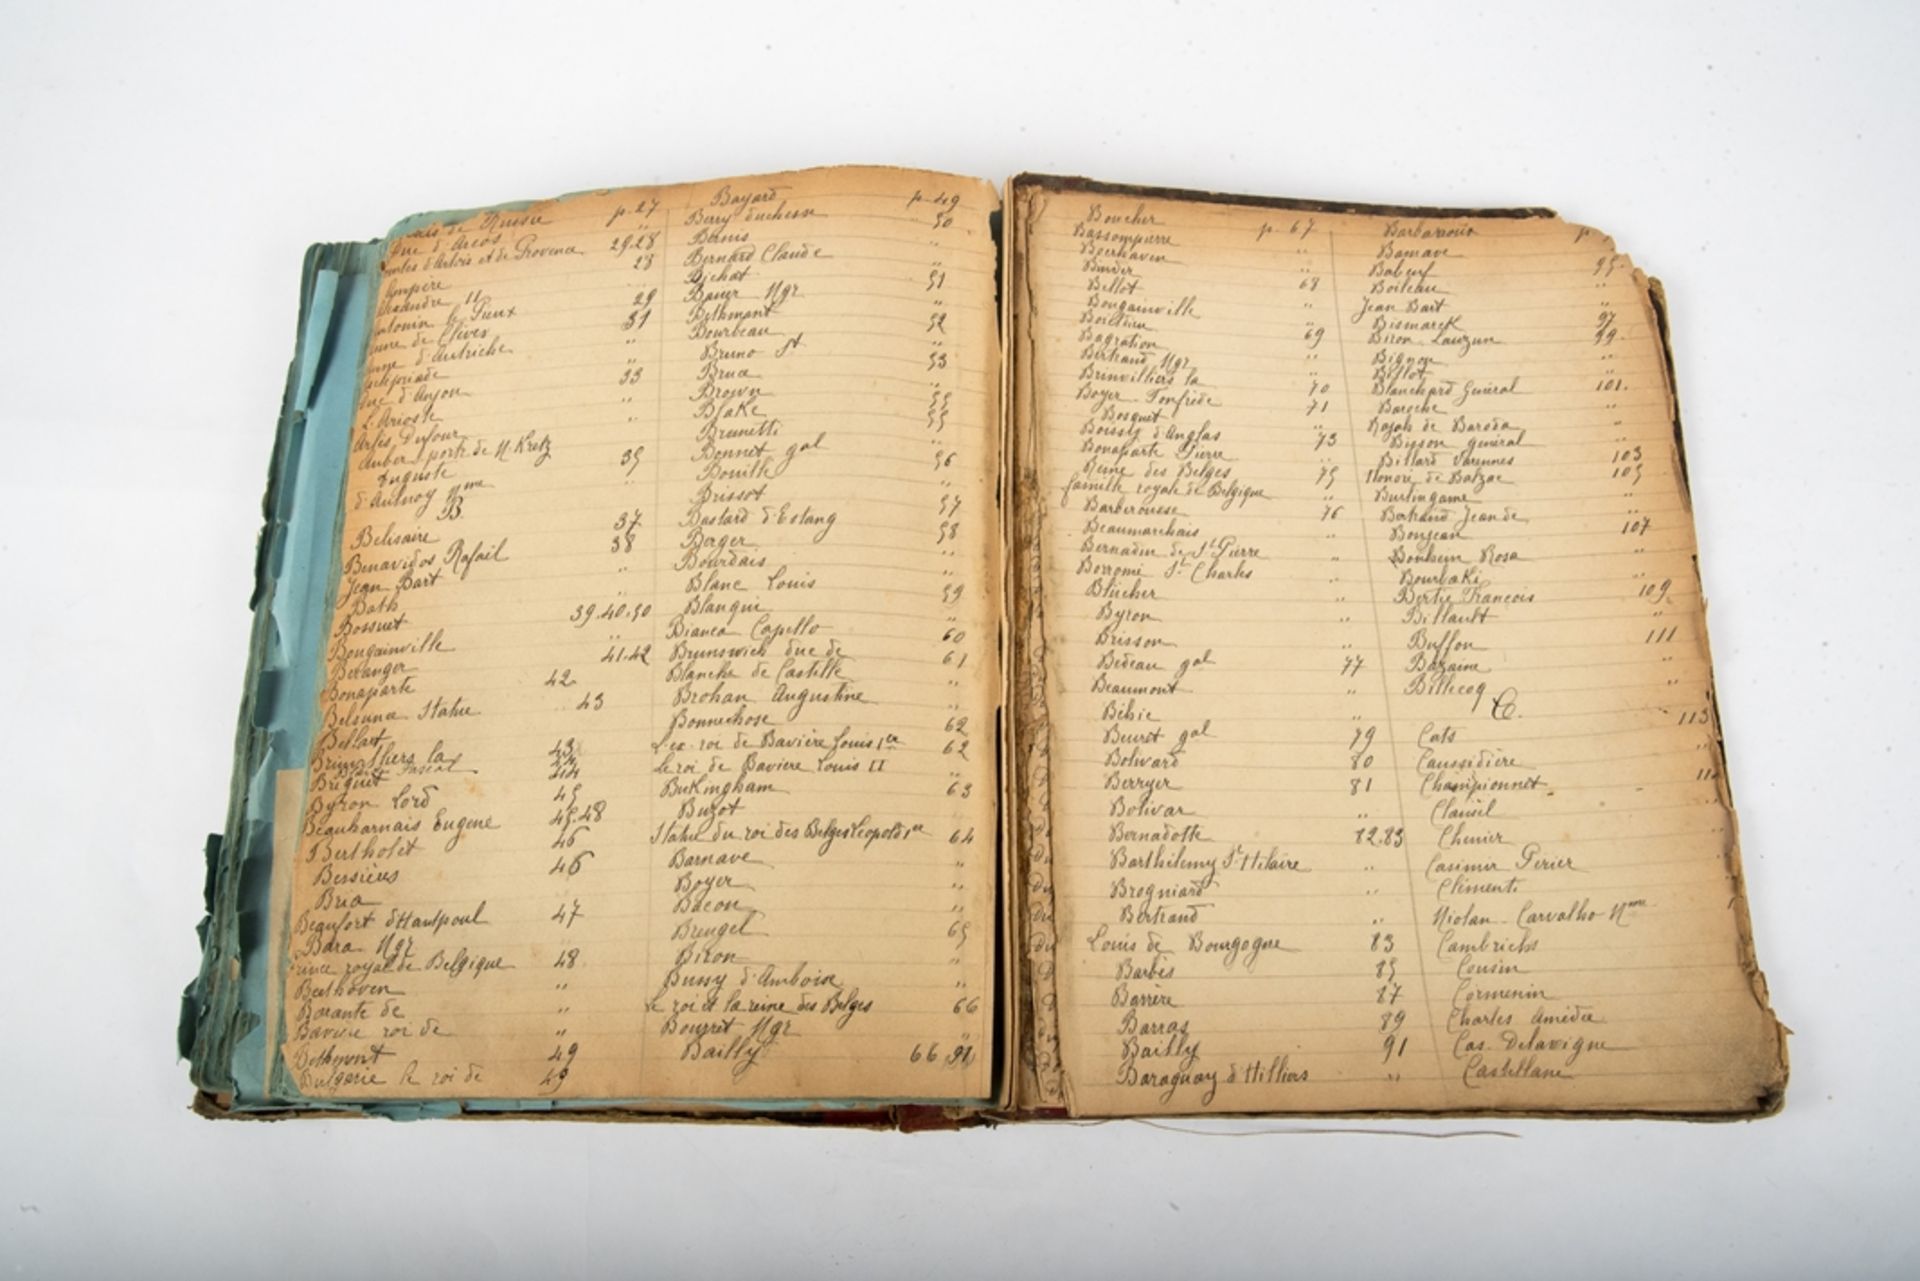 de Russie p. 27
Duc d'Arcos "
d'Artois et de Provence 29.28
28
Alexandre II
Antonin le Pieux 29
Anne de Clèves 31
Anne d'Autriche "
"
Duc d'Anjou 33
L'Arioste "
Arlès Dufour "
Auber, porte de M. Kretz
Auguste 35
d'Aulnoy Mme "
B.
Belisaire 37
Benavidos Rafail 38
Jean Bart "
Bath "
Bossuet 39.40.50
Bougainville "
Beranger 41.42
Bonaparte 42
Belsunce Statue 43
Bellart
Brinvilliers la 43
Pascal 44
Breguet 44
Byron Lord 45
Beauharnais Eugene 45.48
Bertholet 46
Bessières 46
Bria
Beaufort d'Hautpoul 47
Bara Mgr
Prince royal de Belgique 48
Beethoven "
Barante de "
Baviere roi de "
Bethmont 49
Bulgarie le roi de 49
Bayard p. 49
Berry duchesse 50
Bernis "
Bernard Claude "
Bichat 51
Bauer Mgr "
Bethmont 52
Bourbeau "
Bruno St 53
Bruce "
Brown 55
Blake 55
Brunetti "
Bonnet gal 56
Bouille "
Brissot 57
Bastard d'Estang 58
Berger "
Bourdais "
Blanc Louis 59
Blanqui "
Bianca Capello 60
Brunswick duc de 61
Blanche de Castille "
Brohan Augustine "
Bonnechose 62
L'ex-roi de Bavière Louis Ier 62
Le roi de Baviere Louis II "
Bukingham 63
Buzot
Statue du roi des Belges Leopold Ier 64
Barnave "
Boyer "
Bacon "
Breugel 65
Biron "
Bussy d'Amboise "
Le roi et la reine des Belges 66
Bourret Mgr "
Bailly 66.91
Boucher p. 67
Bassompierre "
Boerhaven "
Burder 68
Bellot "
Bougainville "
Boildieu 69
Bagration "
Bertrand Mgr "
Brinvilliers la 70
Boyer-Fonfrède 71
Bosquet "
Boissy d'Anglas 73
Bonaparte Pierre "
Reine des Belges 75
famille royale de Belgique "
Barberousse 76
Beaumarchais "
Bernadin de St Pierre "
Borromé St Charles "
Blücher "
Byron "
Brisson "
Bedeau gal 77
Beaumont "
Béhic "
Beuret gal 79
Boliward 80
Berryer 81
Bolivar "
Bernadotte 82.83
Barthélemy St Hilaire "
Brogniard "
Bertrand "
Louis de Bourgogne 83
Barbès 85
Barrère 87
Barras 89
Bailly 91
Baraguay d'Hilliers "
Barbaroux p.
Barnave
Babeuf 95
Boileau "
Jean Bart "
Bismarck 97
Biron-Lauzun 99
Bignon "
Billot "
Blanchard Général 101
Baroche "
Rajah de Baroda "
Bisson général "
Billard Varennes 103
Honoré de Balzac 105
Burlingame "
Bertrand Jean de "
Bonjean 107
Bonheur Rosa "
Bourbaki "
Bertie Francois 109
Billault "
Buffon 111
Bazaine "
Billecoq "
C. 113
Cats
Caussidière "
Championnet
Clausil "
Chenier
Casimir Perier
Climenti
Miolan-Carvalho Mme
Cambriels
Cousin
Cormenin
Charles Amédée
Cas. Delavigne
Castellane